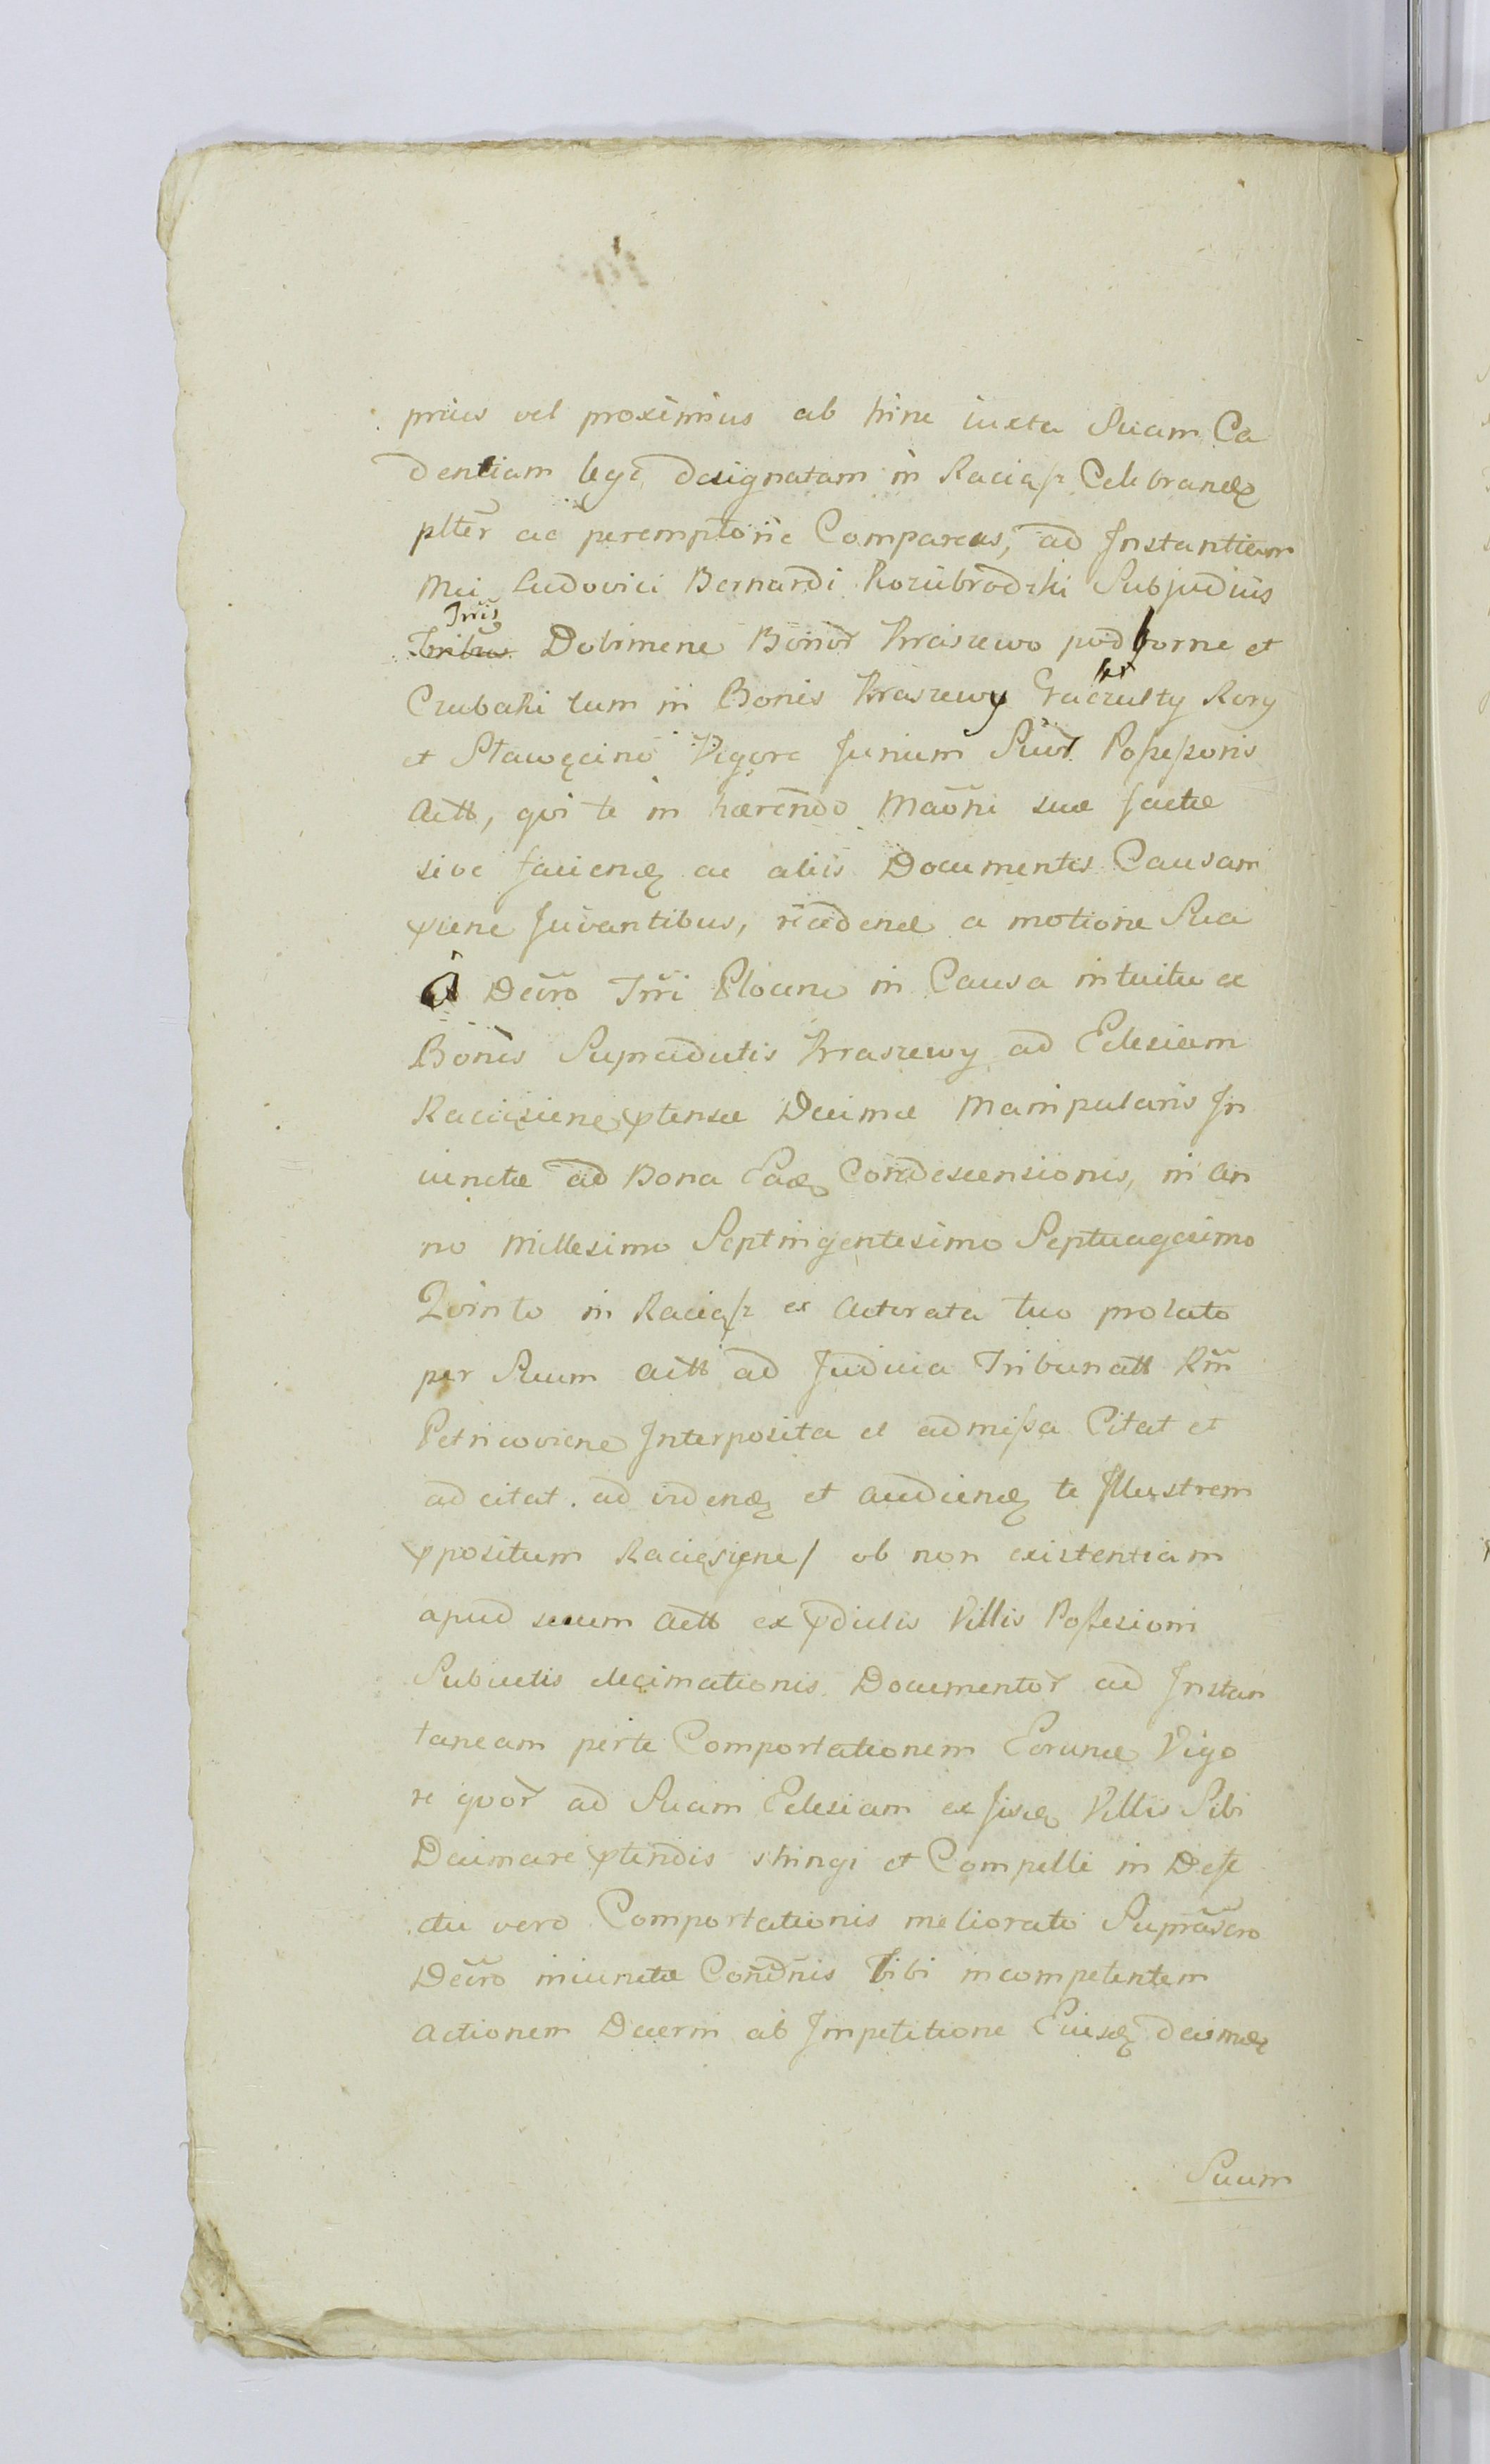 prius vel proximius ab hinc iuxta Suam Ca
dentiam lege designatam in Raciąsz Celebrandę
plter ac peremptorie Compareas, ad Instantiam
Mei Ludovici Bernardi Kozubrodzki Subjudicis
Trris
Dobrinene Bonor Kraszewo podborne et
Czubaki tum in Bonis Kraszewy Gaczulty Rory
et Sławęcino Vigore Jurium Suor Poſseſsoris
Actt, qvi te in hærendo Maōni suæ factæ
sive faciendę ac aliis Documentis Causam
pñene Juvantibus, recedend a motione Sua
à Decro Trri Plocene in Causa intuitu ex
Bonis Supradictis Kraszewy ad Eclesiam
Raciązene ptensæ Decimæ Manipularis In
iunctæ ad Bona Eadę Condescensionis, in An
no Millesimo Septingentesimo Septuagesimo
Qvinto in Raciąsz ex Actoratu tuo prolato
per Suum Actt ad Judicia Tribunatt Rñi
Petricoviene Interposita et admiſsa Citat et
adcitat. ad videndę et audiendę te Illustrem
ppositum Raciązene / ob non existentiam
apud suum Actt ex pdictis Villis Poſsesioni
Subiectis decimationis Documentor ad Instan
taneam perte Comportationem Eorund Vigo
re qvor ad Suam Eclesiam ex Iisdę Villis Sibi
Decimare ptendis stringi et Compelli in Defe
ctu vero Comportationis meliorato Suprascro
Decro iniunctæ Condñis Tibi incompetentem
Actionem Decerni ab Impetitione Eiusdę Decimæ
Suum